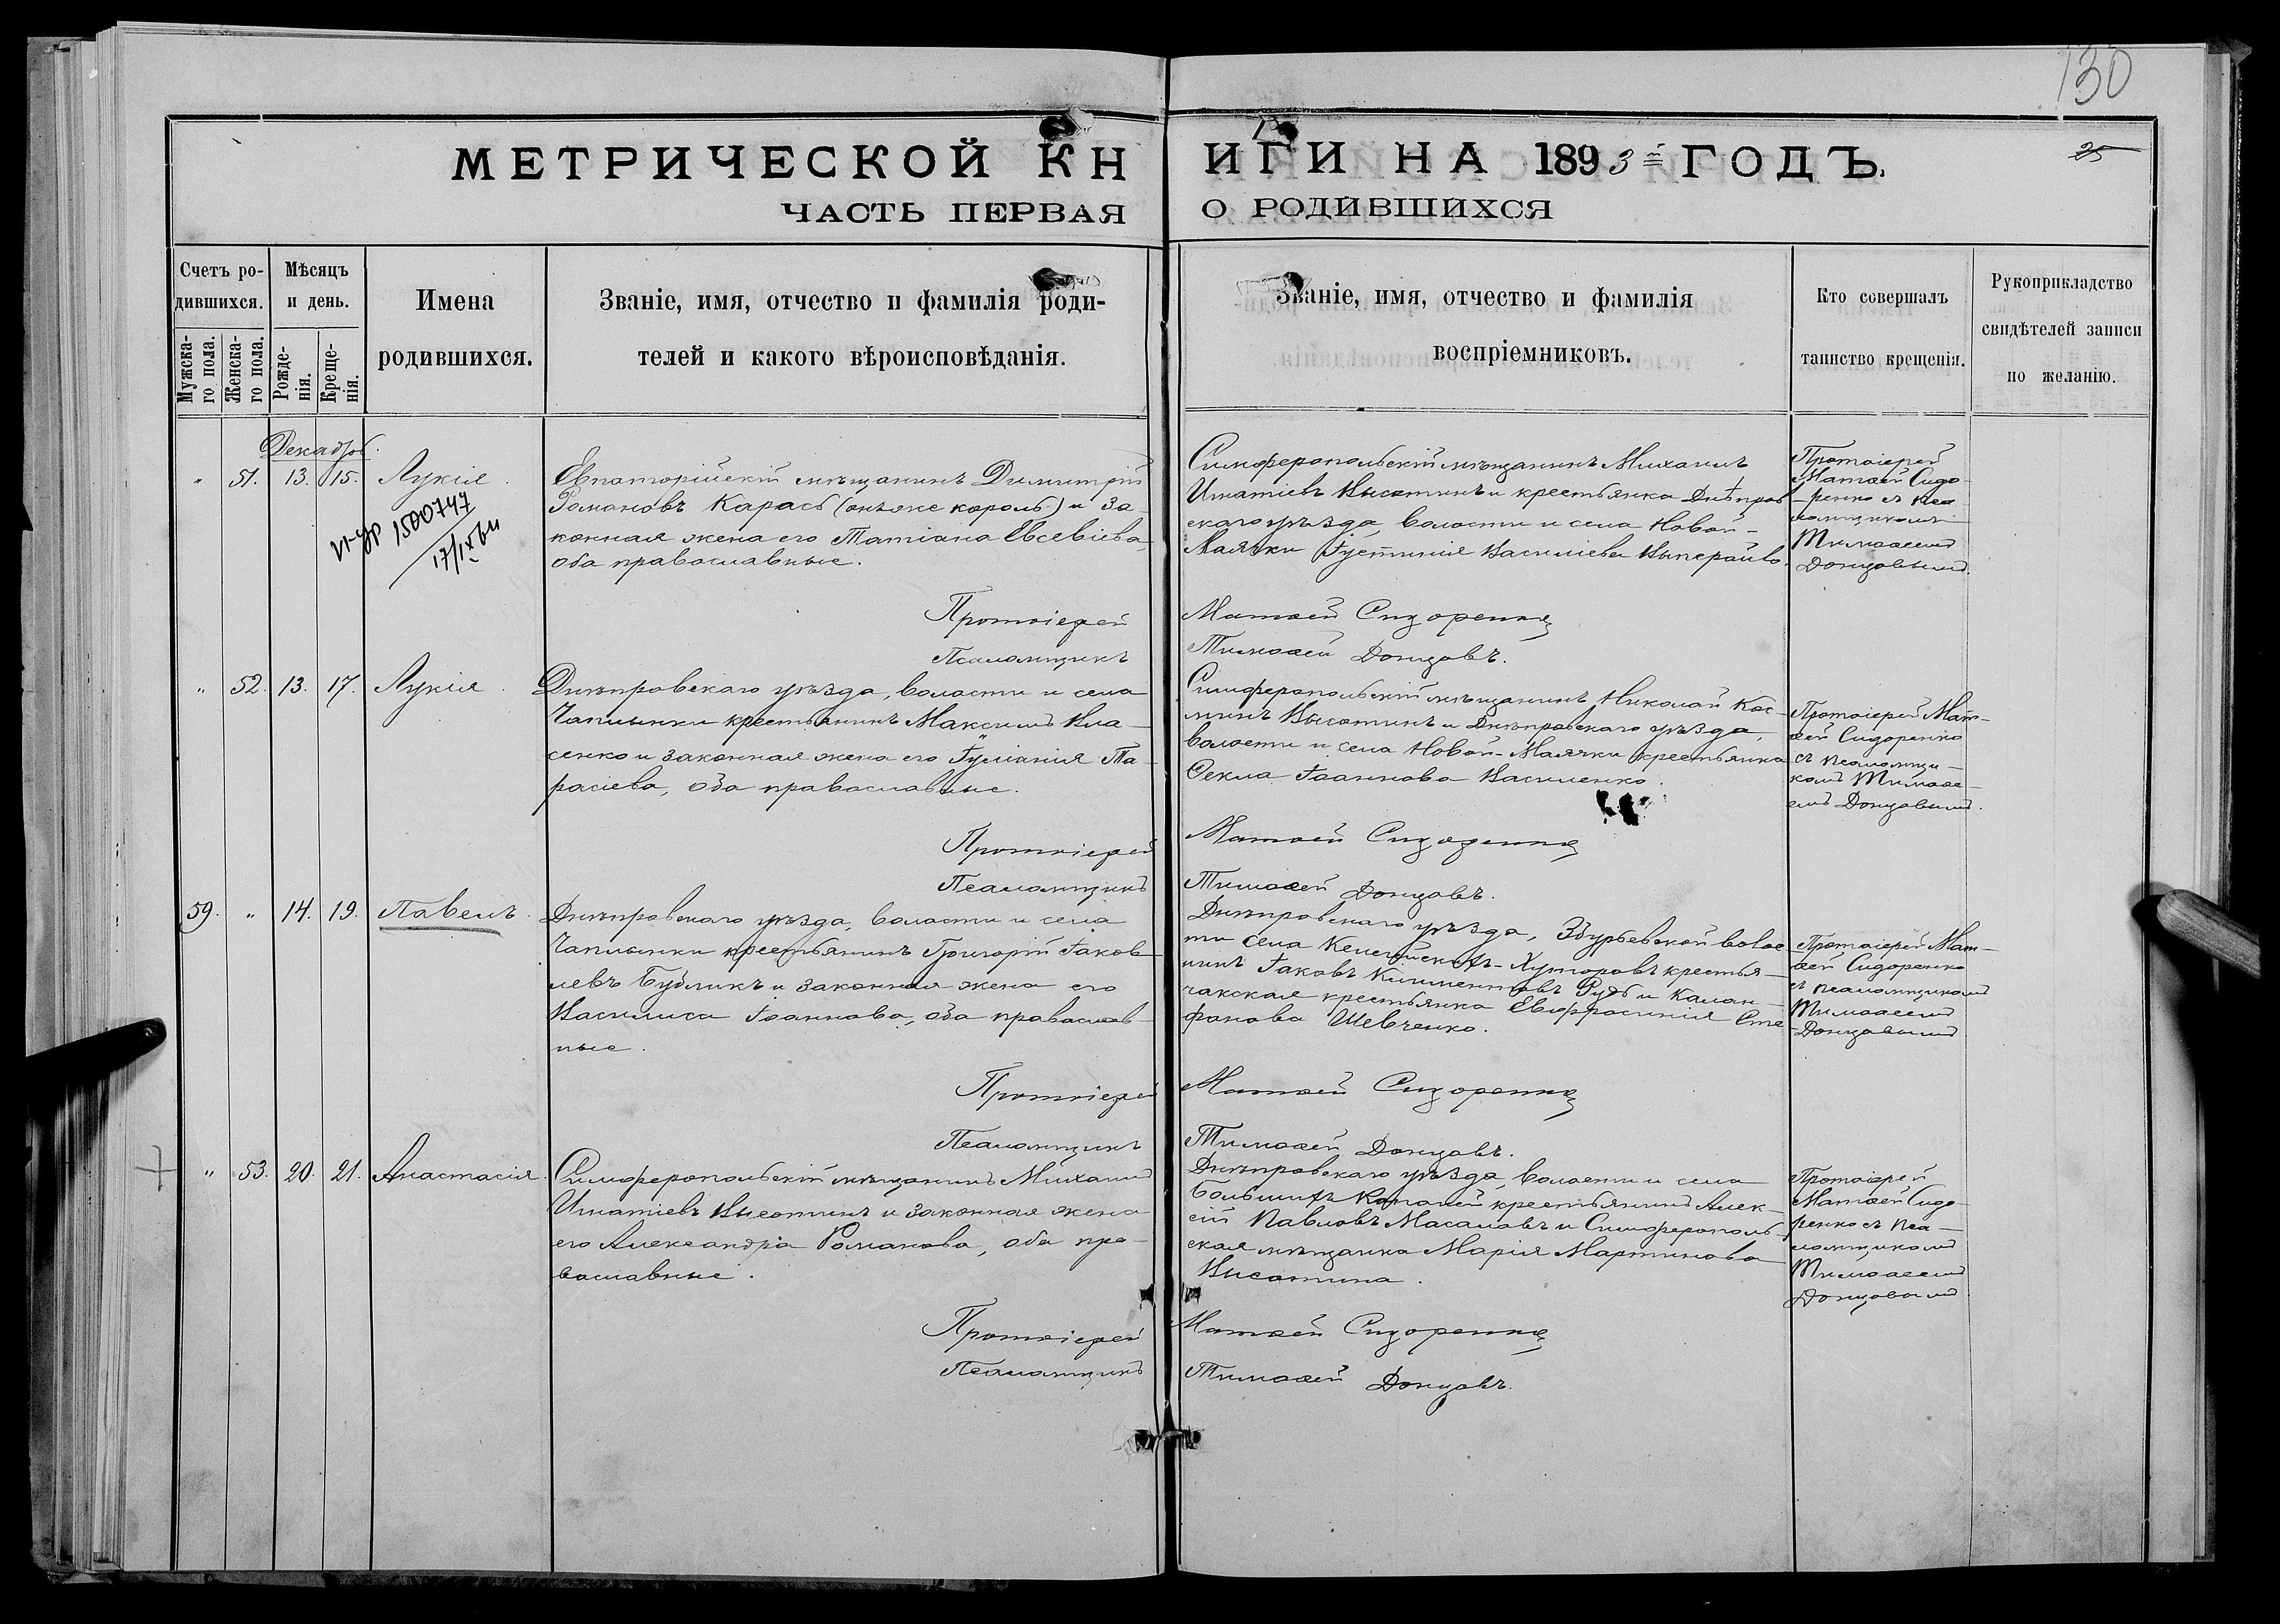 130
25
МЕТРИЧЕСКОЙ КН
ИГИ НА 1893й ГОДЪ.
ЧАСТЬ ПЕРВАЯ
О РОДИВШИХСЯ
Счетъ ро-
дившихся.
Мужска-
го пола.
Женска-
го пола.
Мѣсяцъ
и день.
Рожде-
нія.
Креще-
нія.
Имена
родившихся.
Званіе, имя, отчество и фамилія роди-
телей и какого вѣроисповѣданія.
Званіе, имя, отчество и фамилія
воспріемниковъ.
Кто совершалъ
таинство крещенія.
Рукоприкладство
свидѣтелей записи
по желанію.
Декабрь.
" 51. 13. 15. Лукія.
1500747
17/IX
Евпаторійскій мѣщанинъ Димитрій
Романовъ Карась (онъ же король) и за-
конная жена его Татіана Евсевіева,
оба православные.
Симферопольскій мѣщанинъ Михаилъ
Игнатіевъ Высотинъ и крестьянка Днѣпров-
скаго уѣзда, волости и села Новой-
Маячки Іустинія Василіева
Протоіерей
Матѳей Сидо-
ренко съ Пса-
ломщикомъ
Тимоѳеемъ
Донцовымъ.
Протоіерей Матѳей Сидоренко
Псаломщикъ Тимоѳей Донцовъ.
" 52. 13. 17. Лукія.
Днѣпровскаго уѣзда, волости и села
Чаплынки крестьянинъ Максимъ Вла-
сенко и законная жена его Іуліанія Та-
расіева, оба православные.
Симферопольскій мѣщанинъ Николай Кос-
минъ Высотинъ и Днѣпровскаго уѣзда,
волости и села Новой-Маячки крестьянка
Ѳекла Іоаннова Василенко.
Протоіерей Мат-
ѳей Сидоренко
съ псаломщи-
комъ Тимоѳе-
емъ Донцовымъ.
Протоіерей Матѳей Сидоренко
Псаломщикъ Тимоѳей Донцовъ.
59. " 14. 19. Павелъ.
Днѣпровскаго уѣзда, волости и села
Чаплынки крестьянинъ Григорій Іаков-
левъ Бубликъ и законная жена его
Василиса Іоаннова, оба православ-
ные.
Днѣпровскаго уѣзда, Збурьевской волос-
ти села Келегейскихъ-Хуторовъ крестья-
нинъ Іаковъ Климентовъ Рудь и Калан-
чакская крестьянка Евфросинія Сте-
фанова Шевченко.
Протоіерей Мат-
ѳей Сидоренко
съ псаломщикомъ
Тимоѳеемъ
Донцовымъ
Протоіерей Матѳей Сидоренко
Псаломщикъ Тимоѳей Донцовъ.
" 53. 20. 21. Анастасія.
Симферопольскій мѣщанинъ Михаилъ
Игнатіевъ Высотинъ и законная жена
его Александра Романова, оба пра-
вославные.
Днѣпровскаго уѣзда, волости и села
Большихъ Копаней крестьянинъ Алек-
сій Павловъ Масаловъ и Симферополь-
ская мѣщанка Марія Мартинова
Высотина.
Протоіерей
Матѳей Сидо-
ренко съ пса-
ломщикомъ
Тимоѳеемъ
Донцовымъ
Протоіерей Матѳей Сидоренко
Псаломщикъ Тимоѳей Донцовъ.